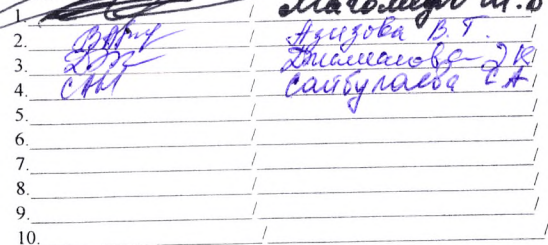 1. / Магомедов М.
2. / Азизова В. Г.
3. / Джамалова Э К
4. / Сайбулаева С А
5. /
6. /
7. /
8. /
9. /
10. /